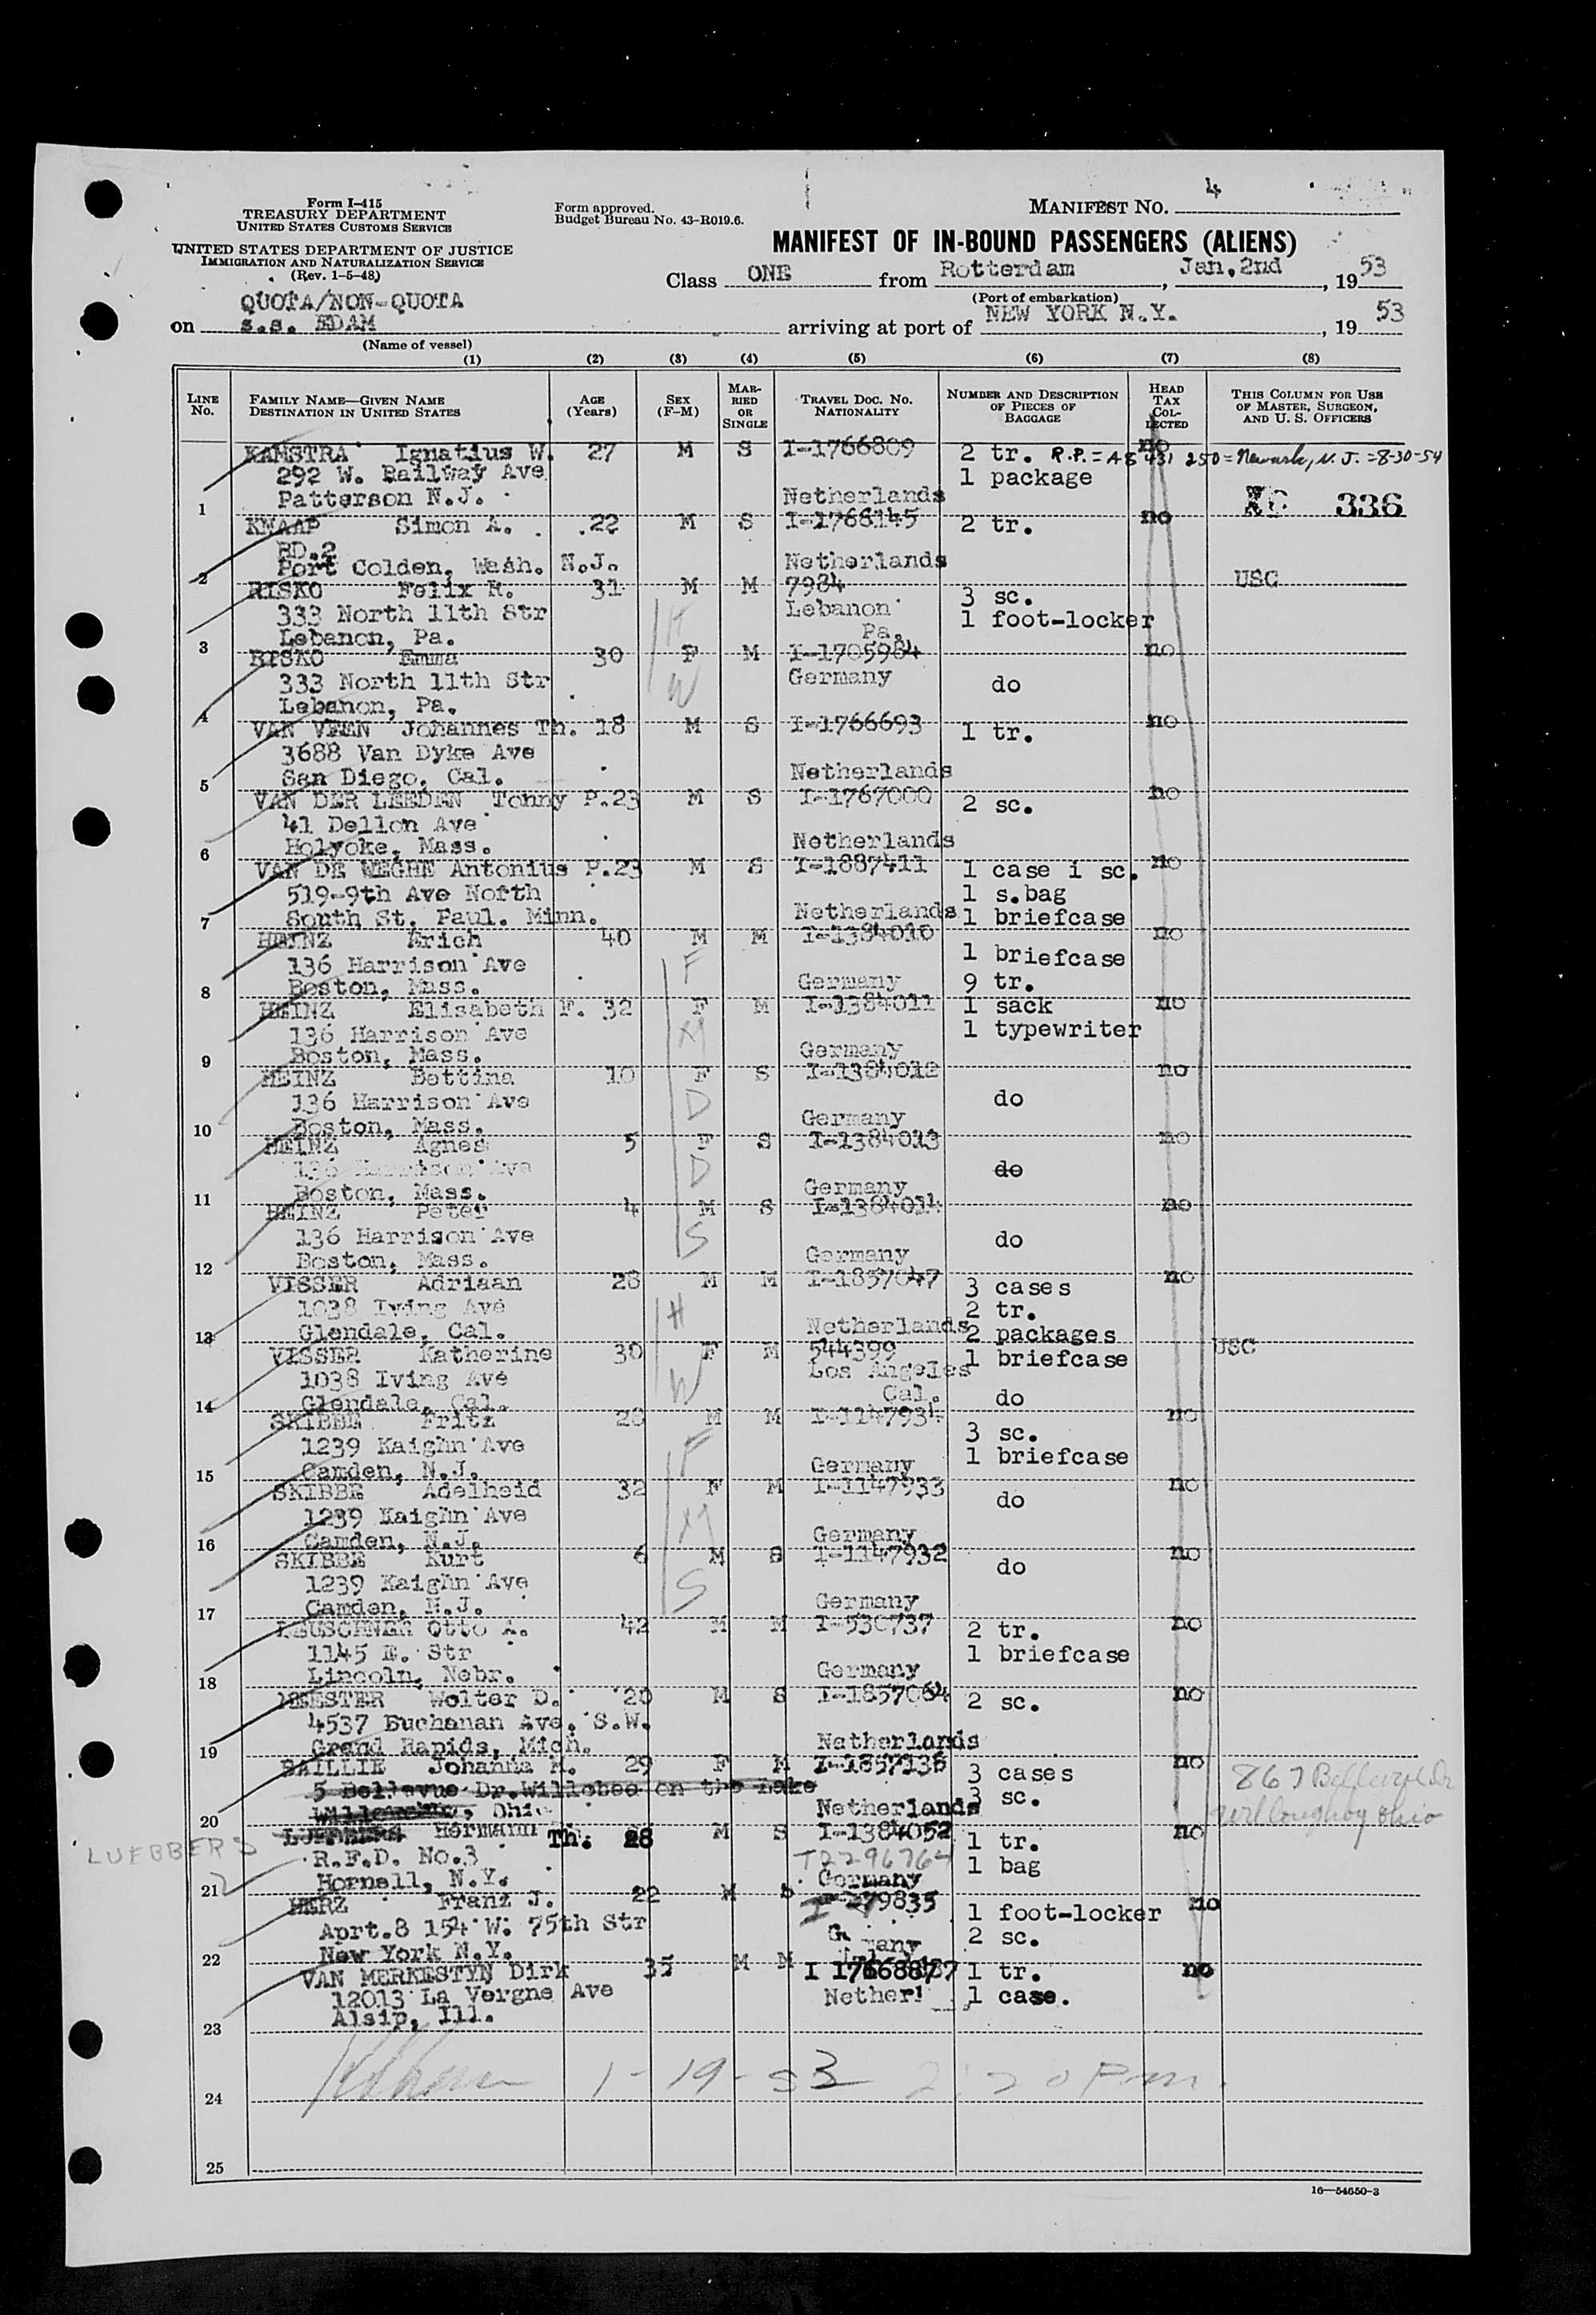 Form I-415
TREASURY DEPARTMENT
UNITED STATES CUSTOMS SERVICE
UNITED STATES DEPARTMENT OF JUSTICE
IMMIGRATION AND NATURALIZATION SERVICE
(Rev. 1-5-48)
Form approved.
Budget Bureau No. 43-R019.6.
MANIFEST NO. 4
MANIFEST OF IN-BOUND PASSENGERS (ALIENS)
Class ONE from Rotterdam, Jan. 2nd, 1953
(Port of embarkation)
QUOTA/NON-QUOTA
on s.s. EDAM arriving at port of NEW YORK N.Y., 1953
(Name of vessel)
(1) (2) (3) (4) (5) (6) (7) (8)
LINE No. FAMILY NAME—GIVEN NAME DESTINATION IN UNITED STATES AGE (Years) SEX (F-M) MARRIED OR SINGLE TRAVEL DOC. NO. NATIONALITY NUMBER AND DESCRIPTION OF PIECES OF BAGGAGE HEAD TAX COLLECTED THIS COLUMN FOR USE OF MASTER, SURGEON, AND U. S. OFFICERS
KAMSTRA Ignatius W. 27 M S I-1766809 2 tr. no R.P. = A8 431 250 = Newark, N.J. = 8-30-54
292 W. Railway Ave 1 package
1 Patterson N.J. Netherlands 336
KWAAP Simon A. 22 M S I-1766145 2 tr. no
RD.2
2 Port Colden, Wash. N.J. Netherlands USC
RISKO Felix R. 31 M M 7984 3 sc.
333 North 11th Str Lebanon 1 foot-locker
3 Lebanon, Pa. Pa.
RISKO Emma 30 F M I-1705984 no
333 North 11th Str Germany do
4 Lebanon, Pa. W
VAN VEEN Johannes Th. 18 M S I-1766693 1 tr. no
3688 Van Dyke Ave
5 San Diego, Cal. Netherlands
VAN DER LEEDEN Tonny P. 23 M S I-1767000 2 sc. no
41 Dellon Ave
6 Holyoke, Mass. Netherlands
VAN DE WEGHE Antonius P. 23 M S I-1887411 1 case i sc. no
519-9th Ave North 1 s.bag
7 South St. Paul. Minn. Netherlands 1 briefcase
HEINZ Erich 40 M M I-1384010 no
136 Harrison Ave F 1 briefcase
8 Boston, Mass. Germany 9 tr.
HEINZ Elisabeth F. 32 F M I-1384011 1 sack no
136 Harrison Ave M 1 typewriter
9 Boston, Mass. Germany
HEINZ Bettina 10 F S I-1384012 no
136 Harrison Ave D do
10 Boston, Mass. Germany
HEINZ Agnes 5 F S I-1384013 no
136 Harrison Ave D do
11 Boston, Mass. Germany
HEINZ Peter 4 M S I-1384014 no
136 Harrison Ave S do
12 Boston, Mass. Germany
VISSER Adriaan 28 M M I-1857047 3 cases no
1038 Iving Ave H 2 tr.
13 Glendale, Cal. Netherlands 2 packages
VISSER Katherine 30 F M 544399 1 briefcase USC
1038 Iving Ave W Los Angeles
14 Glendale, Cal. Cal. do
SKIBBE Fritz 28 M M I-1147934 3 sc. no
1239 Kaighn Ave F 1 briefcase
15 Camden, N.J. Germany
SKIBBE Adelheid 32 F M I-1147933 do no
1239 Kaighn Ave M
16 Camden, N.J. Germany
SKIBBE Kurt 6 M S I-1147932 do no
1239 Kaighn Ave S
17 Camden, N.J. Germany
LEUSCHNER Otto A. 42 M M I-530737 2 tr. no
1145 E. Str 1 briefcase
18 Lincoln, Nebr. Germany
MEESTER Wolter D. 20 M S I-1857064 2 sc. no
4537 Buchanan Ave. S.W.
19 Grand Rapids, Mich. Netherlands
BAILLIE Johanna M. 29 F M I-1857136 3 cases no
5 Bellevue Dr. Willobee on the Lake 3 sc. 867 Bellevue Dr
20 Ohio Netherlands Willoughby Ohio
LUEBBERS Hermann Th. 28 M S I-1384052 1 tr. no
R.F.D. No.3 1 bag
21 Hornell, N.Y. Germany
HERZ Franz J. 22 M S 1 foot-locker no
Aprt.8 154 W. 75th Str 2 sc.
22 New York N.Y.
VAN MERKESTYN Dirk 35 M M 1 tr. no
12013 La Vergne Ave 1 case.
23 Alsip, Ill.
24 1-19-53 2:20 P.m.
25
16—54650-3